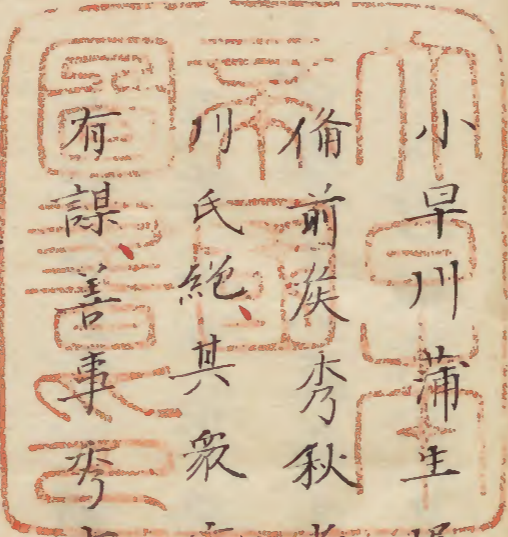 小早川蒲生
備前矦秀秋
川氏絶其衆
有謀善事秀